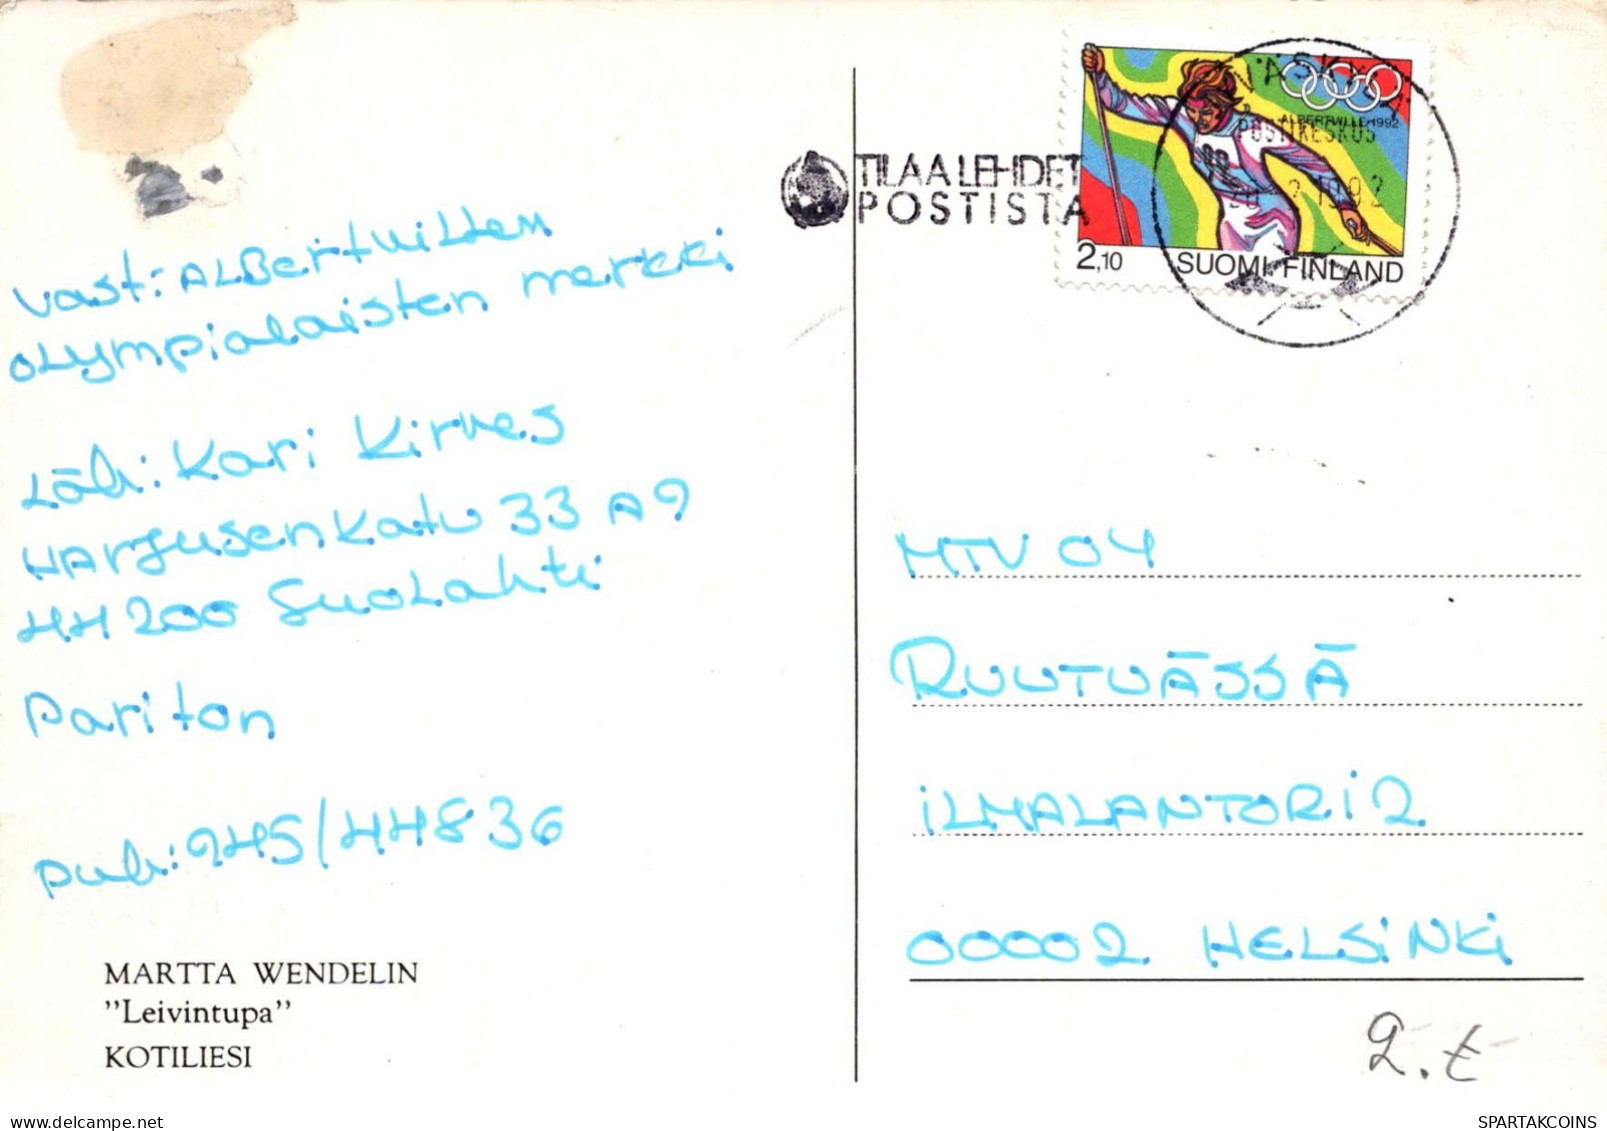 vast: ALBertvillen
OLympialaisten merkki
Läh: Kari Kirves
HArjusenkatu 33 A 9
44200 SuoLahti
Pariton
puh: 945/44836
MARTTA WENDELIN
”Leivintupa”
KOTILIESI
TILAA LEHDET
POSTISTA
ALBERTVILLE 1992
POSTIKESKUS
1992
2,10 SUOMI FINLAND
MTV 04
RUUTUÄSSÄ
iLMALANTORi 2
00002 HELSiNKi
SPARTAKCOINS